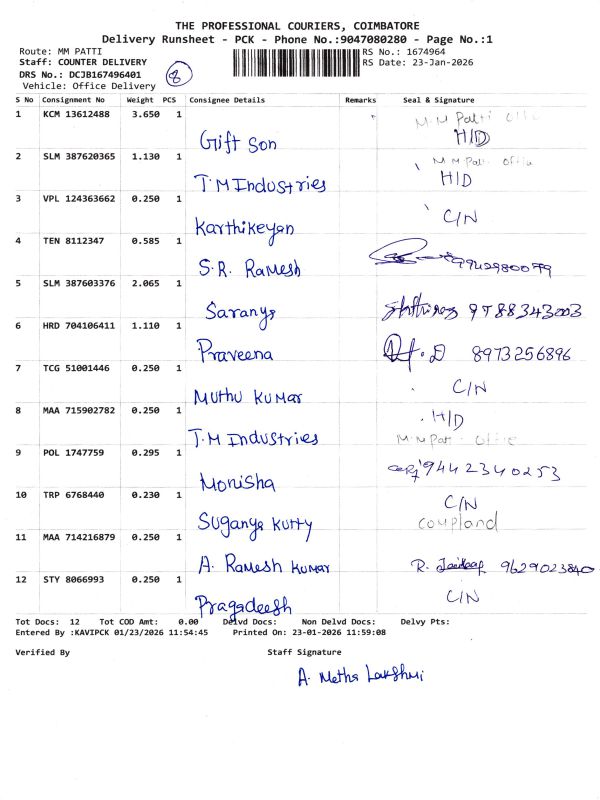 THE PROFESSIONAL COURIERS, COIMBATORE
Delivery Runsheet - PCK - Phone No.:9047080280 - Page No.:1
Route: MM PATTI RS No.: 1674964
Staff: COUNTER DELIVERY RS Date: 23-Jan-2026
DRS No.: DCJB167496401 8
Vehicle: Office Delivery
S No Consignment No Weight PCS Consignee Details Remarks Seal & Signature
1 KCM 13612488 3.650 1 Gift Son M.M Patti H/D
2 SLM 387620365 1.130 1 T.M Industries M M Patti office H/D
3 VPL 124363662 0.250 1 Karthikeyan C/N
4 TEN 8112347 0.585 1 S.R. Ramesh
5 SLM 387603376 2.065 1 Saranya 9788343003
6 HRD 704106411 1.110 1 Praveena 8973256896
7 TCG 51001446 0.250 1 Muthu Kumar C/N
8 MAA 715902782 0.250 1 T.M Industries H/D
M.M Patti office
9 POL 1747759 0.295 1 Monisha 9442340253
10 TRP 6768440 0.230 1 Suganya Kutty C/N
11 MAA 714216879 0.250 1 A. Ramesh Kumar R. 9629023840
12 STY 8066993 0.250 1 Pragadeesh C/N
Tot Docs: 12 Tot COD Amt: 0.00 Delvd Docs: Non Delvd Docs: Delvy Pts:
Entered By :KAVIPCK 01/23/2026 11:54:45 Printed On: 23-01-2026 11:59:08
Verified By Staff Signature
A. Metha Lakshmi